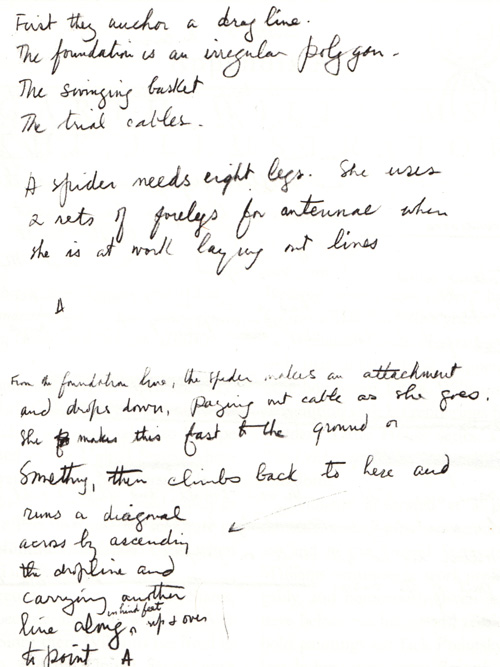 First they anchor a drag line.
The foundation is an irregular polygon.
The swinging basket
The trial cables.
A spider needs eight legs. She uses
2 sets of forelegs for antennae when
she is at work laying out lines
A
From the foundation line, the spider makes an attachment
and drops down, paying out cable as she goes.
She makes this fast to the ground or
something, then climbs back to here and
runs a diagonal
across by ascending
the dropline and
carrying another
in hind feet
line along, up & over
to point A